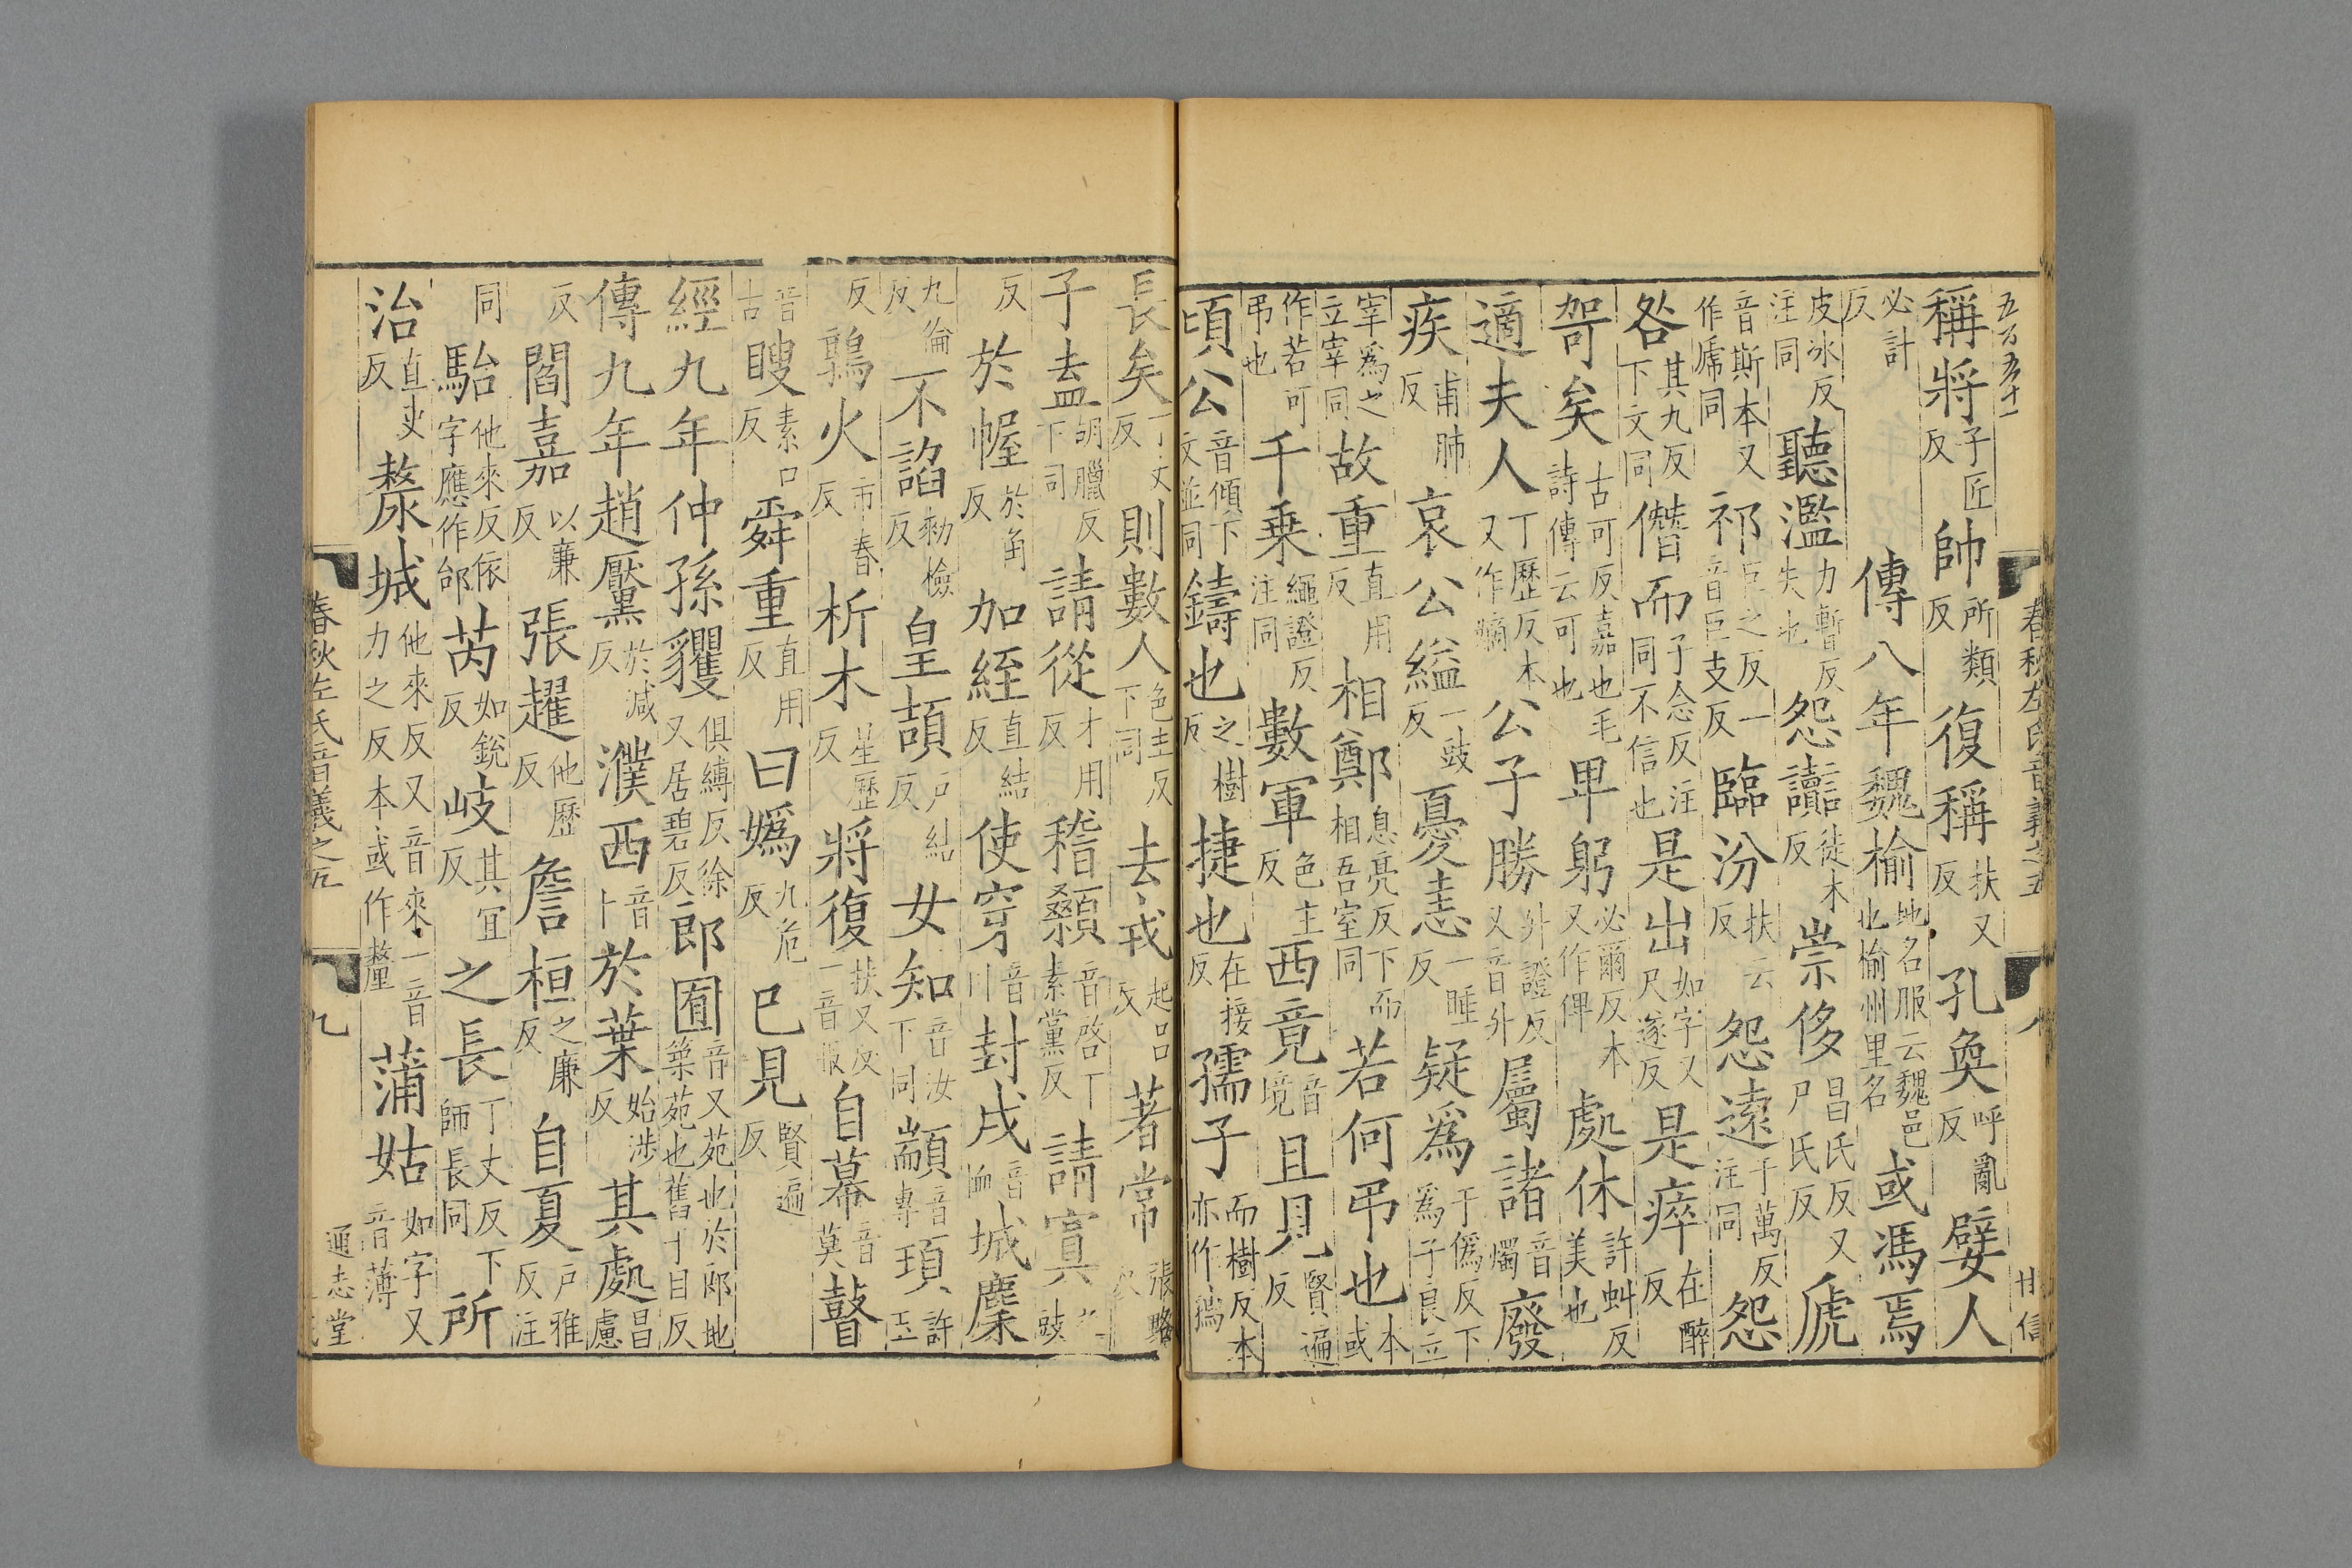 春秋左氏音義之五
稱將子匠反帥所類反復稱扶又反孔奐呼亂反嬖人
必計反傳八年魏榆地名服云魏邑也榆州里名或馮焉
皮冰反注同聽濫力暫反失也怨讟徒木反崇侈昌氏反又尸氏反虒
音斯本又作虎同祁巨之反一音巨支反臨汾扶云反怨遠于萬反注同怨
咎其九反下文同僭而子念反注同不信也是出如字又尺遂反是瘁在醉反
哿矣古可反嘉也毛詩傳云可也卑躬必爾反本又作俾處休許虯反美也
適夫人丁歷反本又作嫡公子勝升證反又音升屬諸音燭廢
疾甫肺反哀公縊一豉反憂恚一睡反疑爲于僞反下爲子良立
宰爲之立宰同故重直用反相鄭息亮反下而相吾室同若何弔也本或
作若可弔也千乗繩證反注同數軍色主反西竟音境且見賢遍反
頃公音傾下文並同鑄也之樹反捷也在接反孺子而樹反本亦作
長矣丁丈反則數人色主反下同去戎起呂反著常張略反
子盍胡臘反下同請從才用反稽顙音啓下素黨反請寘之豉
反於幄於角反加絰直結反使穿音川封戌音恤城麇
九倫反不諂勑檢反皇頡戶結反女知音汝下同顓音專頊許玉
反鶉火市春反析木星歷反將復扶又反一音服自幕音莫瞽
音古瞍素口反舜重直用反曰嬀九危反巳見賢遍反
經九年仲孫貜俱縛反徐又居碧反郎囿音又苑也於郎地築苑也舊于目反
傳九年趙黶於減反濮西音卜於葉始涉反其處昌慮
反閻嘉以廉反張趯他歷反詹桓之廉反自夏戶雅反注
同駘他來反依字應作邰芮如銳反岐其宜反之長丁丈反下師長同所
治直吏反漦城他來反又音來一音力之反本或作釐蒲姑如字又音薄
春秋左氏音義之五
九
通志堂